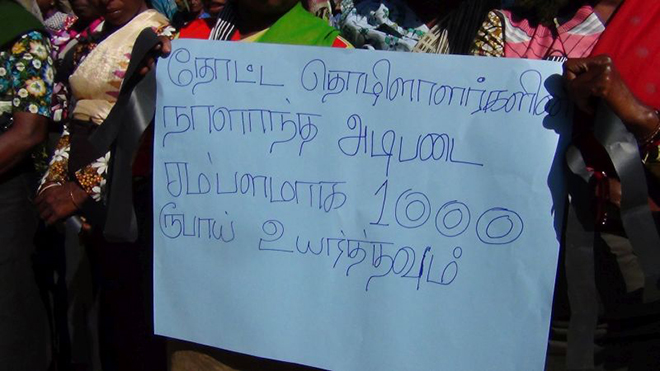 தோட்ட தொழிளாளர்களின்
நாளாந்த அடிபடை
சம்பளமாக 1000
ரூபாய் உயர்த்தவும்